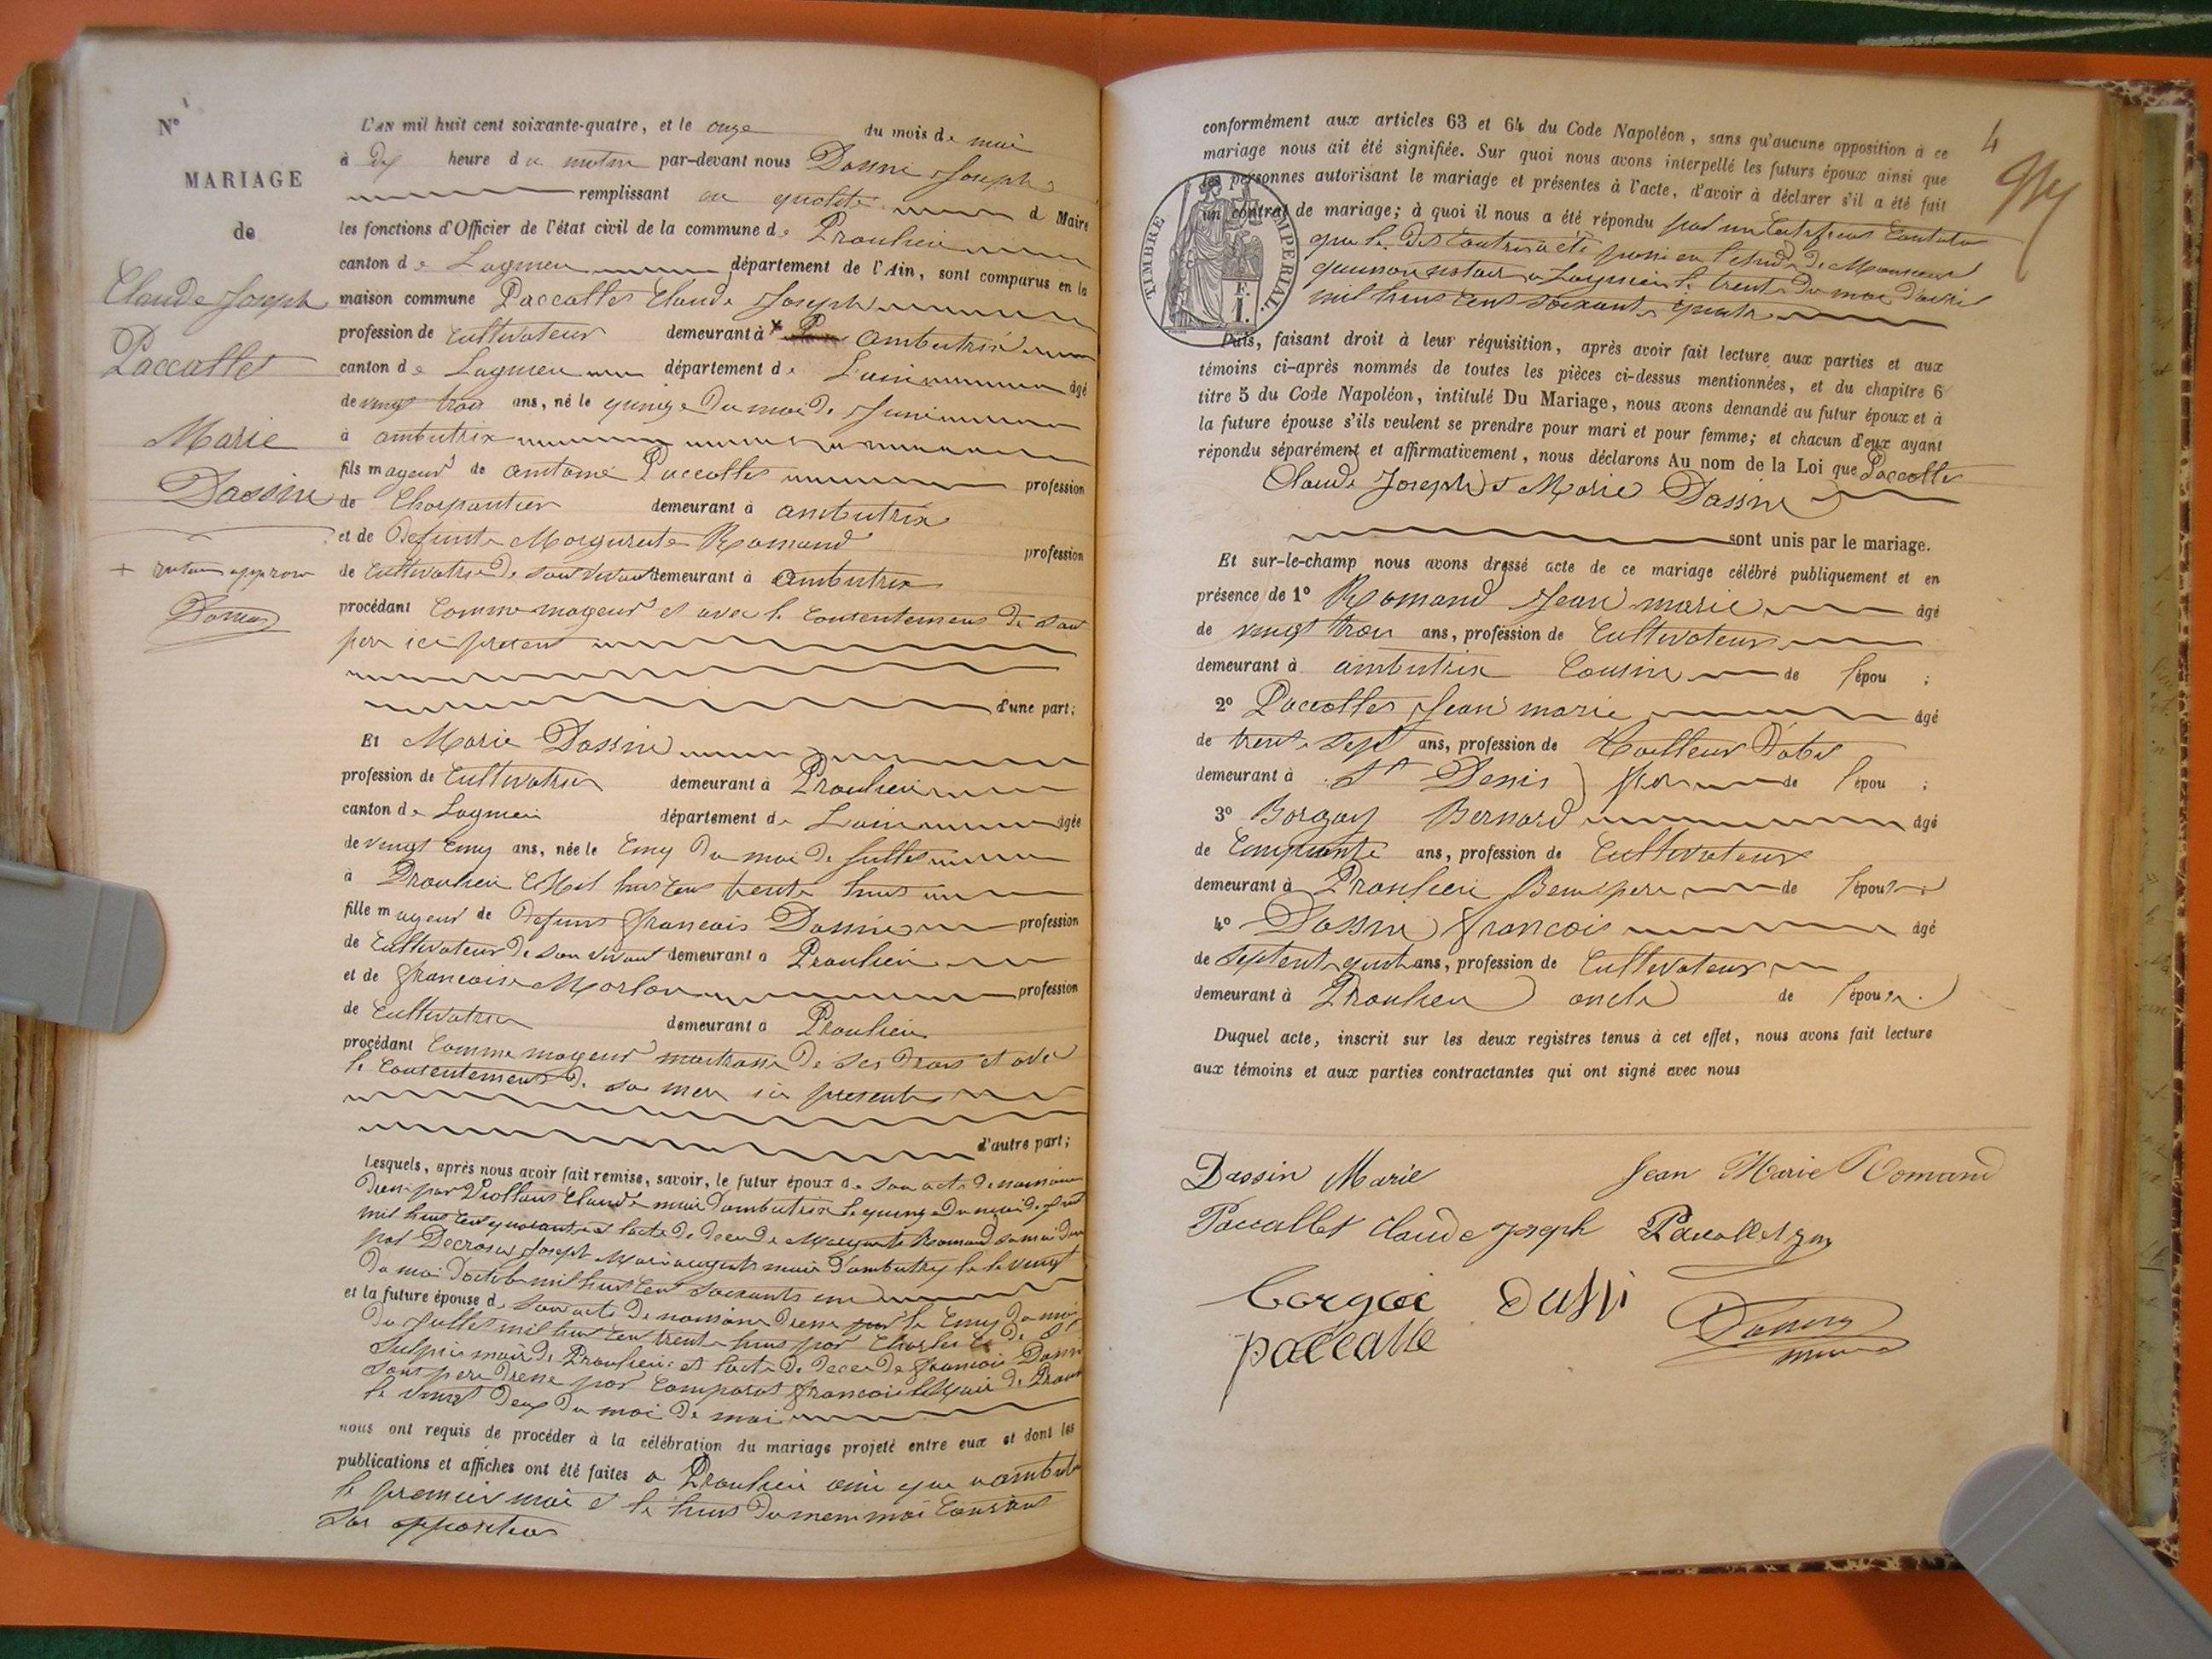 N°
MARIAGE
de
Claude Joseph
Paccallet
Marie
Dassin
+ rature approuv
L'AN mil huit cent soixante-quatre, et le onze du mois de mai
à dix heure du matin par-devant nous Dassin Joseph
remplissant en qualité d Maire
les fonctions d'Officier de l'état civil de la commune de Proulieu
canton de Lagnieu département de l'Ain, sont comparus en la
maison commune Paccallet Claude Joseph
profession de Cultivateur demeurant à Ambutrix
canton de Lagnieu département de L'ain âgé
de vingt trois ans, né le quinze du moi de Juin
à ambutrix
fils mageur de antoine Paccallet profession
de Charpantier demeurant à ambutrix
et de Defunte Margurite Romand profession
de Cultivatrice de son vivant demeurant à Ambutrix
procédant Comme mageur et avec le Consentement de son
père ici present
d'une part;
Et Marie Dassin
profession de Cultivatrice demeurant à Proulieu
canton de Lagnieu département de L'ain âgée
de vingt Cinq ans, née le Cinq du moi de Jullet
à Proulieu Mil huit Cent trente huit
fille mageur de Defunt francois Dassin profession
de Cultivateur de son vivant demeurant à Proulieu
et de francoise Morlon profession
de Cultivatrice demeurant à Proulieu
procédant Comme mageur maitrasse de ses Droits et avec
le Consentement de sa mere ici presente
d'autre part;
Lesquels, après nous avoir fait remise, savoir, le futur époux de son acte de naissance
par Claude maire d'ambutrix le quinze du moi de Juin
mil huit Cent quarante et l'acte de deces de Margurite Romand sa mere
par Decrosa Joseph Marie auguste maire d'ambutrix le vingt
du moi d'octobre mil huit Cent soixante un
et la future épouse de son acte de naissance le Cinq du moi
de Jullet mil huit Cent trente huit par Charles de St
Sulpis maire de Proulieu et l'acte de deces de francois Dassin
son pere par Comparat francois Maire de
le vingt deux du moi de mai
nous ont requis de procéder à la célébration du mariage projeté entre eux et dont les
publications et affiches ont été faites a Proulieu ainsi que a
le premier mai et le huit du meme moi Courant
opposition
4
conformément aux articles 63 et 64 du Code Napoléon, sans qu'aucune opposition à ce
mariage nous ait été signifiée. Sur quoi nous avons interpellé les futurs époux ainsi que
les personnes autorisant le mariage et présentes à l'acte, d'avoir à déclarer s'il a été fait
un contrat de mariage; à quoi il nous a été répondu par un Certificat
TIMBRE IMPERIAL.
F.
1.
que le dit Contrat a été passé en l'etude de Monsieur
notaire a Lagnieu le trente du moi d'avril
mil huit Cent soixante quatre
Puis, faisant droit à leur réquisition, après avoir fait lecture aux parties et aux
témoins ci-après nommés de toutes les pièces ci-dessus mentionnées, et du chapitre 6
titre 5 du Code Napoléon, intitulé Du Mariage, nous avons demandé au futur époux et à
la future épouse s'ils veulent se prendre pour mari et pour femme; et chacun d'eux ayant
répondu séparément et affirmativement, nous déclarons Au nom de la Loi que Paccallet
Claude Joseph et Marie Dassin
sont unis par le mariage.
Et sur-le-champ nous avons dressé acte de ce mariage célébré publiquement et en
présence de 1° Romand Jean marie âgé
de vingt trois ans, profession de Cultivateur
demeurant à ambutrix Cousin de l'épou ;
2° Paccallet Jean marie âgé
de trente sept ans, profession de Tailleur d'abis
demeurant à St Denis frer de l'épou ;
3° Borgay Bernard âgé
de Cinquante ans, profession de Cultivateur
demeurant à Proulieu Beau pere de l'épouse
4° Dassin francois âgé
de Septente quatre ans, profession de Cultivateur
demeurant à Proulieu oncle de l'épouse.
Duquel acte, inscrit sur les deux registres tenus à cet effet, nous avons fait lecture
aux témoins et aux parties contractantes qui ont signé avec nous
Dassin Marie Jean Marie Romand
Paccallet Claude Joseph Paccallet
Borgai Dassi
paccalle